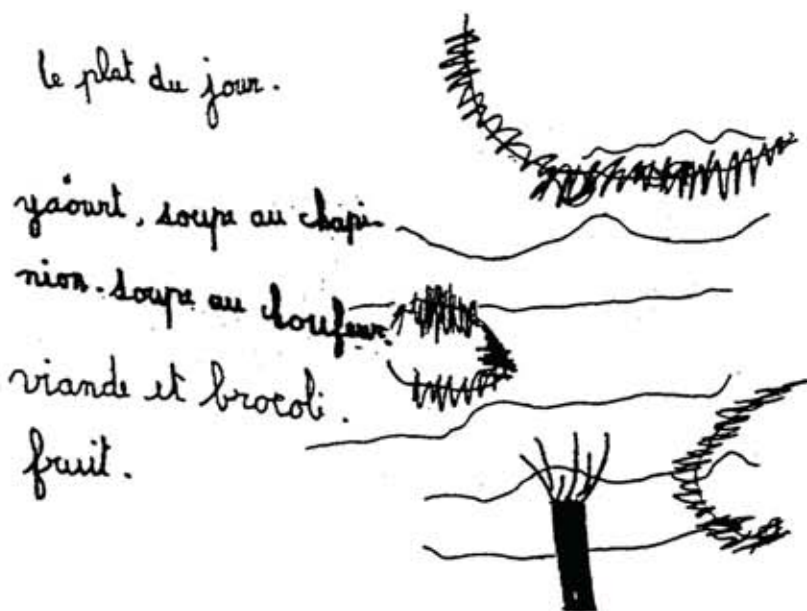 le plat du jour.
yaourt, soupe au chapi-
nion. soupe au loufeur.
viande et brocoli.
fruit.